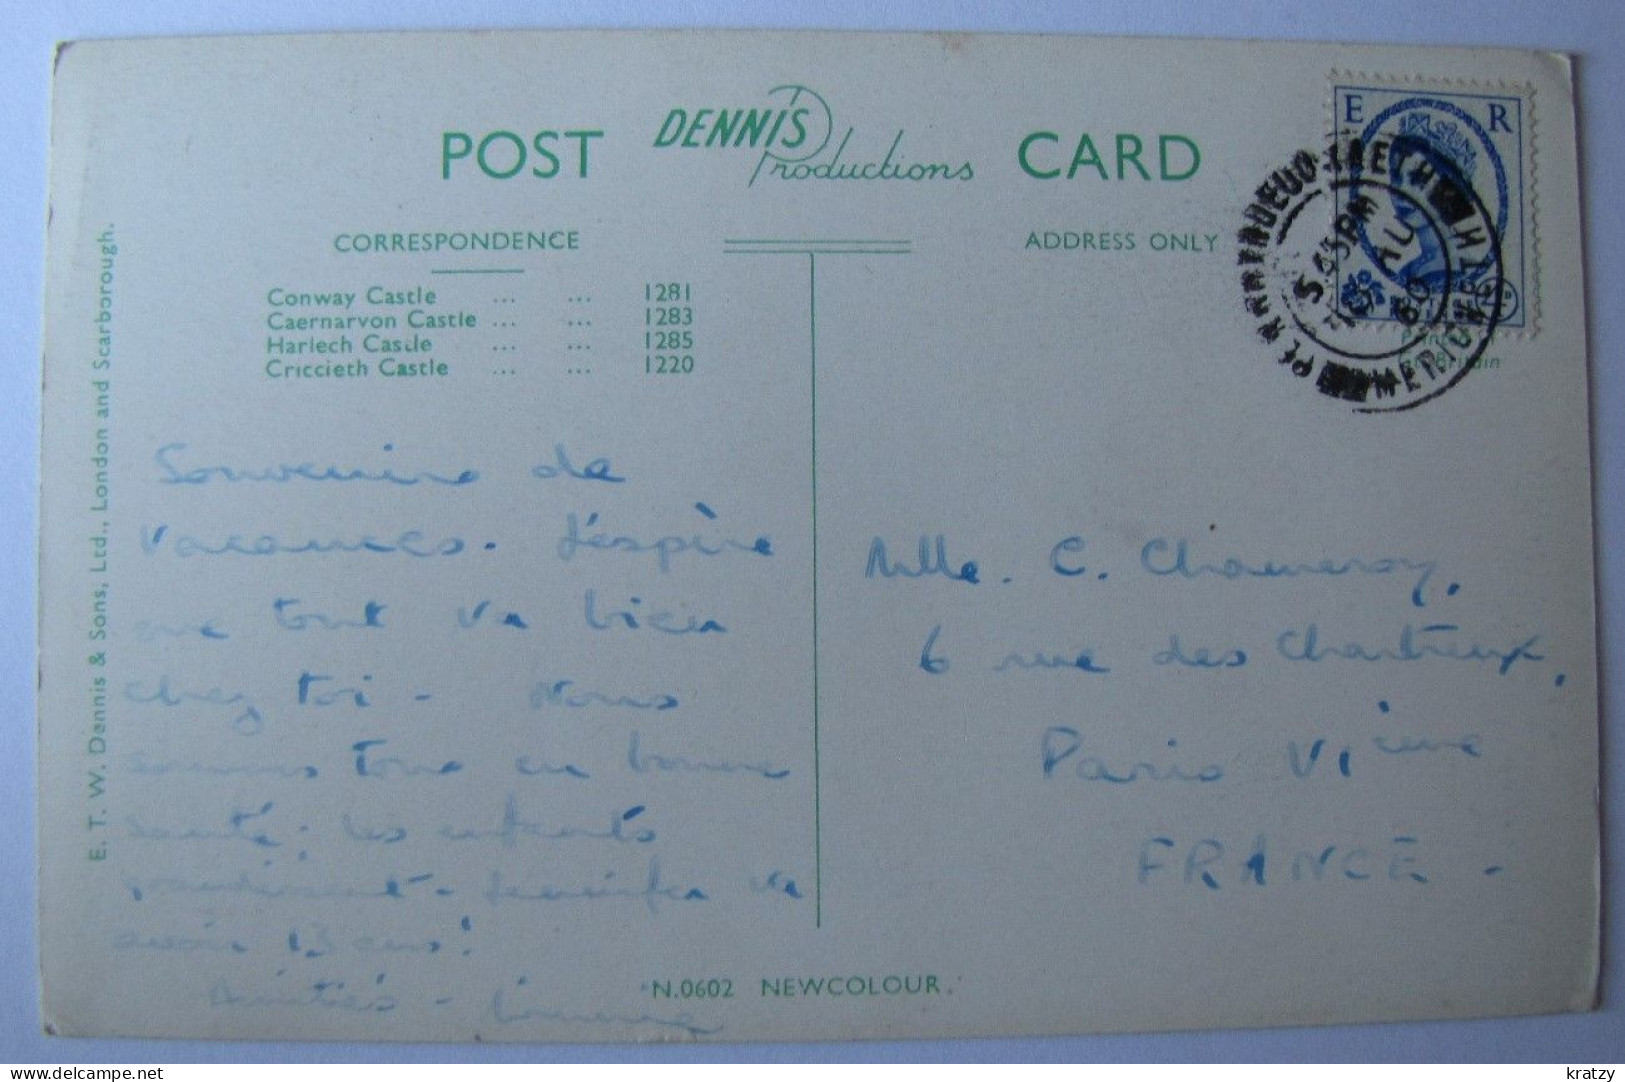 POST DENNIS Productions CARD
CORRESPONDENCE
Conway Castle ... ... 1281
Caernarvon Castle ... ... 1283
Harlech Castle ... ... 1285
Criccieth Castle ... ... 1220
ADDRESS ONLY
E R
5 45 PM
AU
60
MERIONETH
Printed
Gt. Britain
E. T. W. Dennis & Sons, Ltd., London and Scarborough.
Souvenirs de
vacances. J'espère
que tout va bien
chez toi - Nous
sommes tous en bonne
santé; les enfants
grandissent - Jennifer va
avoir 13 ans!
Amitiés -
Mlle. C. Chameroy,
6 rue des Chartreux,
Paris VIième
FRANCE -
N.0602 NEWCOLOUR.
kratzy
delcampe.net